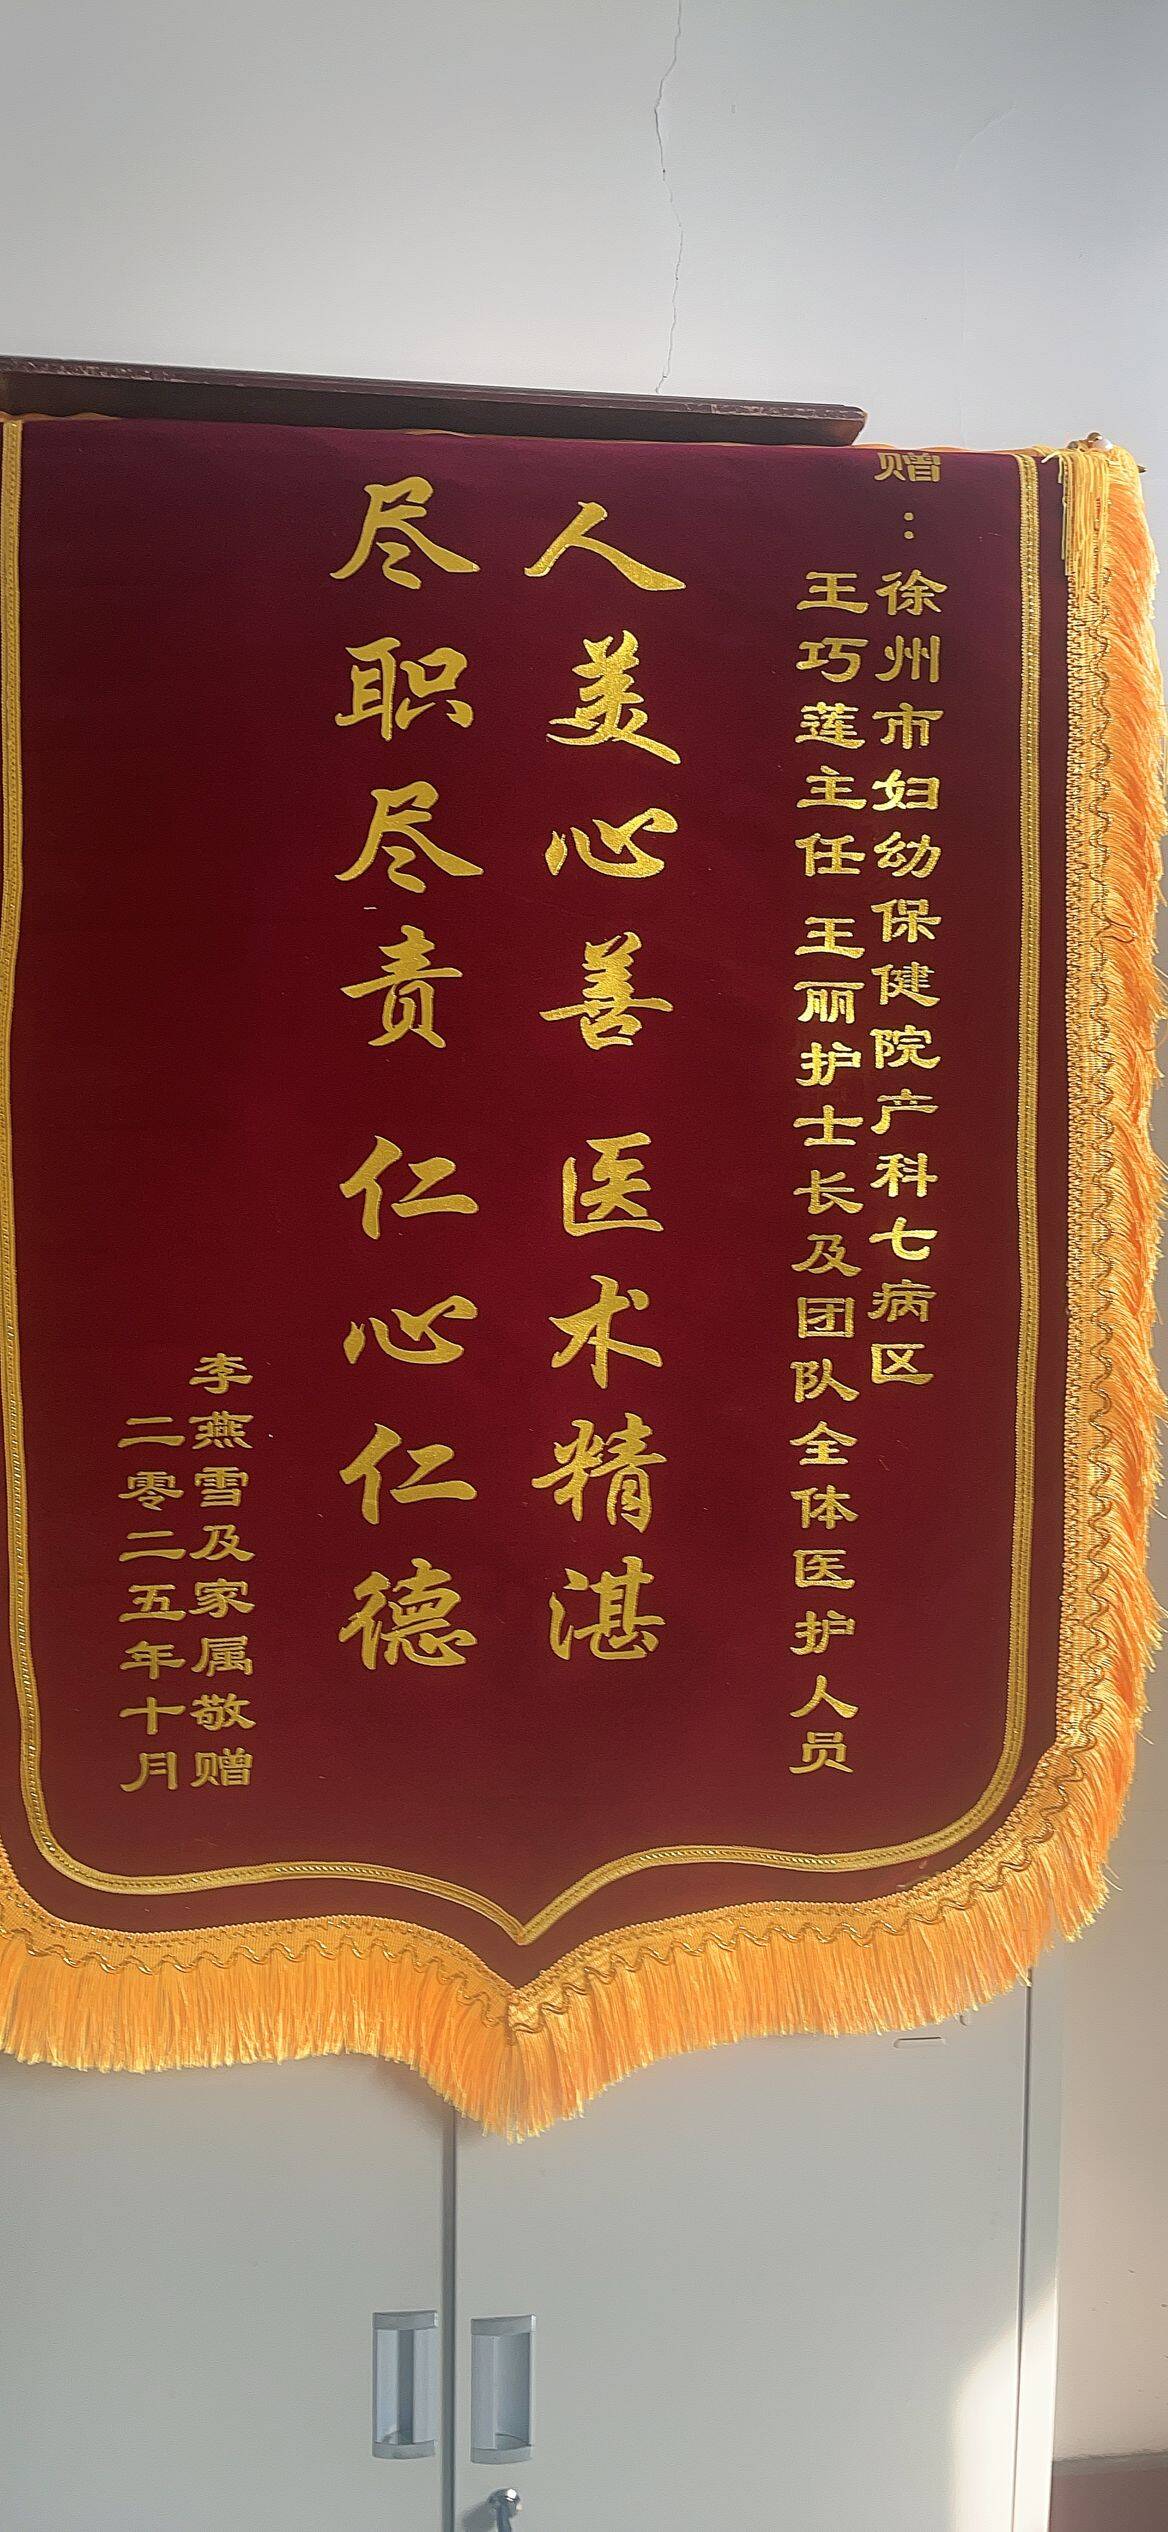 赠：徐州市妇幼保健院产科七病区
王巧莲主任 王丽护士长及团队全体医护人员
人美心善 医术精湛
尽职尽责 仁心仁德
李燕雪及家属敬赠
二零二五年十月